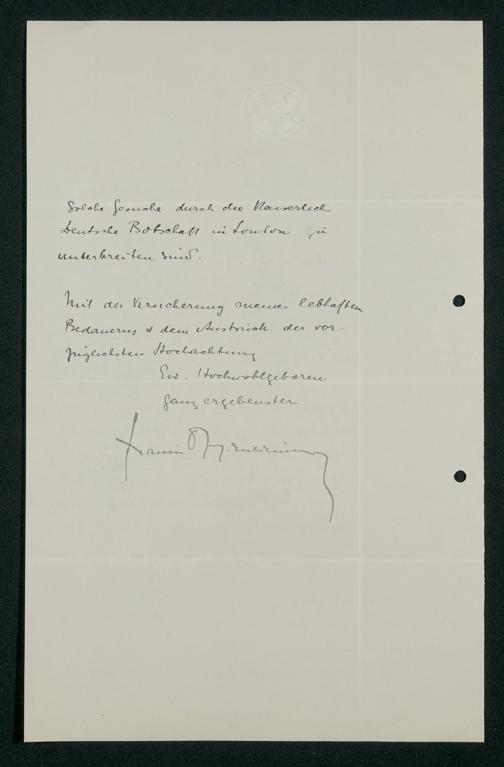 solche Gesuche durch die Kaiserlich
Deutsche Botschaft in London zu
unterbreiten sind.
Mit der Versicherung meines lebhaften
Bedauerns & dem Ausdruck der vor-
züglichsten Hochachtung
Ew. Hochwohlgeboren
ganz ergebenster
Francis